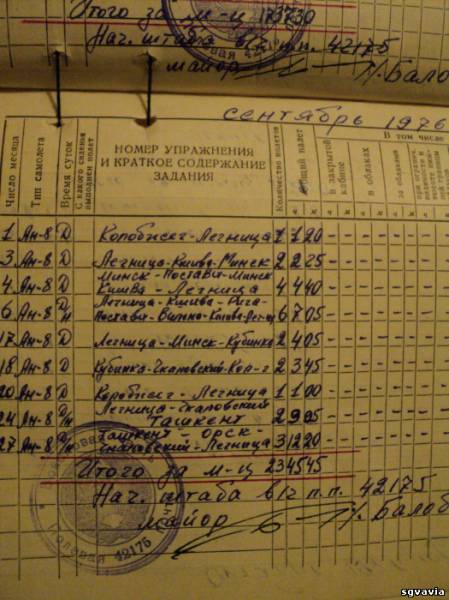 Итого за м-ц 173730
Нач. штаба в/ч п.п. 42175
майор Балоб
сентябрь 1976
Число месяца
Тип самолета
Время суток
С какого сиденья выполнен полет
НОМЕР УПРАЖНЕНИЯ
И КРАТКОЕ СОДЕРЖАНИЕ
ЗАДАНИЯ
Количество полетов
Общий налет
В том числе
в закрытой кабине
в облаках
за облаками
1 Ан-8 Д Колобжег-Легница 1 1 20
3 Ан-8 Д Легница-Кшива-Минск 2 2 25
4 Ан-8 Д Минск-Постави-Минск
Кшива-Легница 4 4 40
6 Ан-8 Д/Н Легница-Кшива-Рига-
Постави-Кшива-Легница 6 7 05
17 Ан-8 Д Легница-Минск-Кубинка 2 4 05
18 Ан-8 Д Кубинка-Чкаловский-Кол-г 2 3 45
20 Ан-8 Д Колобжег-Легница 1 1 00
24 Ан-8 Д/Н Легница-Чкаловский
Ташкент 2 9 05
27 Ан-8 Д/Н Ташкент-Орск-
Чкаловский-Легница 3 12 20
Итого за м-ц 23 45 45
Нач. штаба в/ч п.п. 42175
майор Балоб
42175
sgvavia